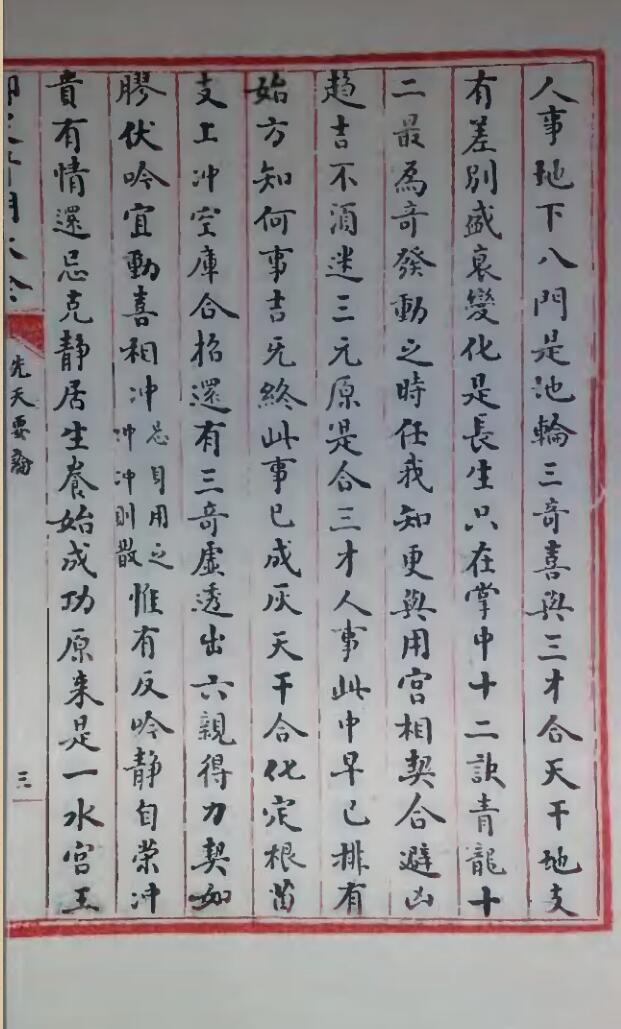 人事地下八門是池輪三奇喜與三才合天干地支
有差別盛衰變化是長生只在掌中十二訣青龍十
二最爲奇發動之時任我知更與用宮相契合避凶
趋吉不須迷三元原是合三才人事此中早已排有
始方知何事吉旡終此事已成灰天干合化定根苗
支上冲空庫合招還有三奇虛透出六親得力契如
膠伏吟宜動喜相冲
忌自用之
冲冲則散
惟有反吟靜自榮冲
貴有情還忌克靜居生養始成功原来是一水宮王
先天要
三